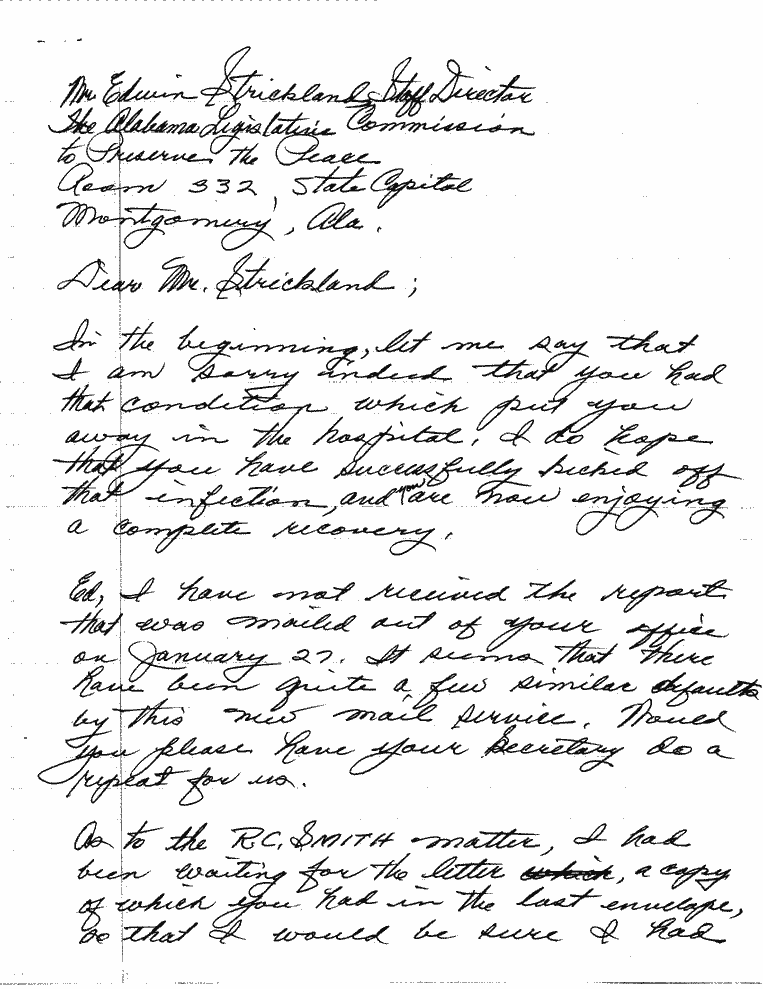 Mr. Edwin Strickland, Staff Director
The Alabama Legislative Commission
to Preserve the Peace
Room 332, State Capitol
Montgomery, Ala.
Dear Mr. Strickland;
In the beginning, let me say that
I am sorry indeed that you had
that condition which put you
away in the hospital. I do hope
that you have successfully kicked off
that infection, and you are now enjoying
a complete recovery.
Ed, I have not received the report
that was mailed out of your office
on January 27. It seems that there
have been quite a few similar defaults
by this new mail service. Would
you please have your secretary do a
repeat for us.
As to the R.C. SMITH matter, I had
been waiting for the letter which, a copy
of which you had in the last envelope,
so that I would be sure I had